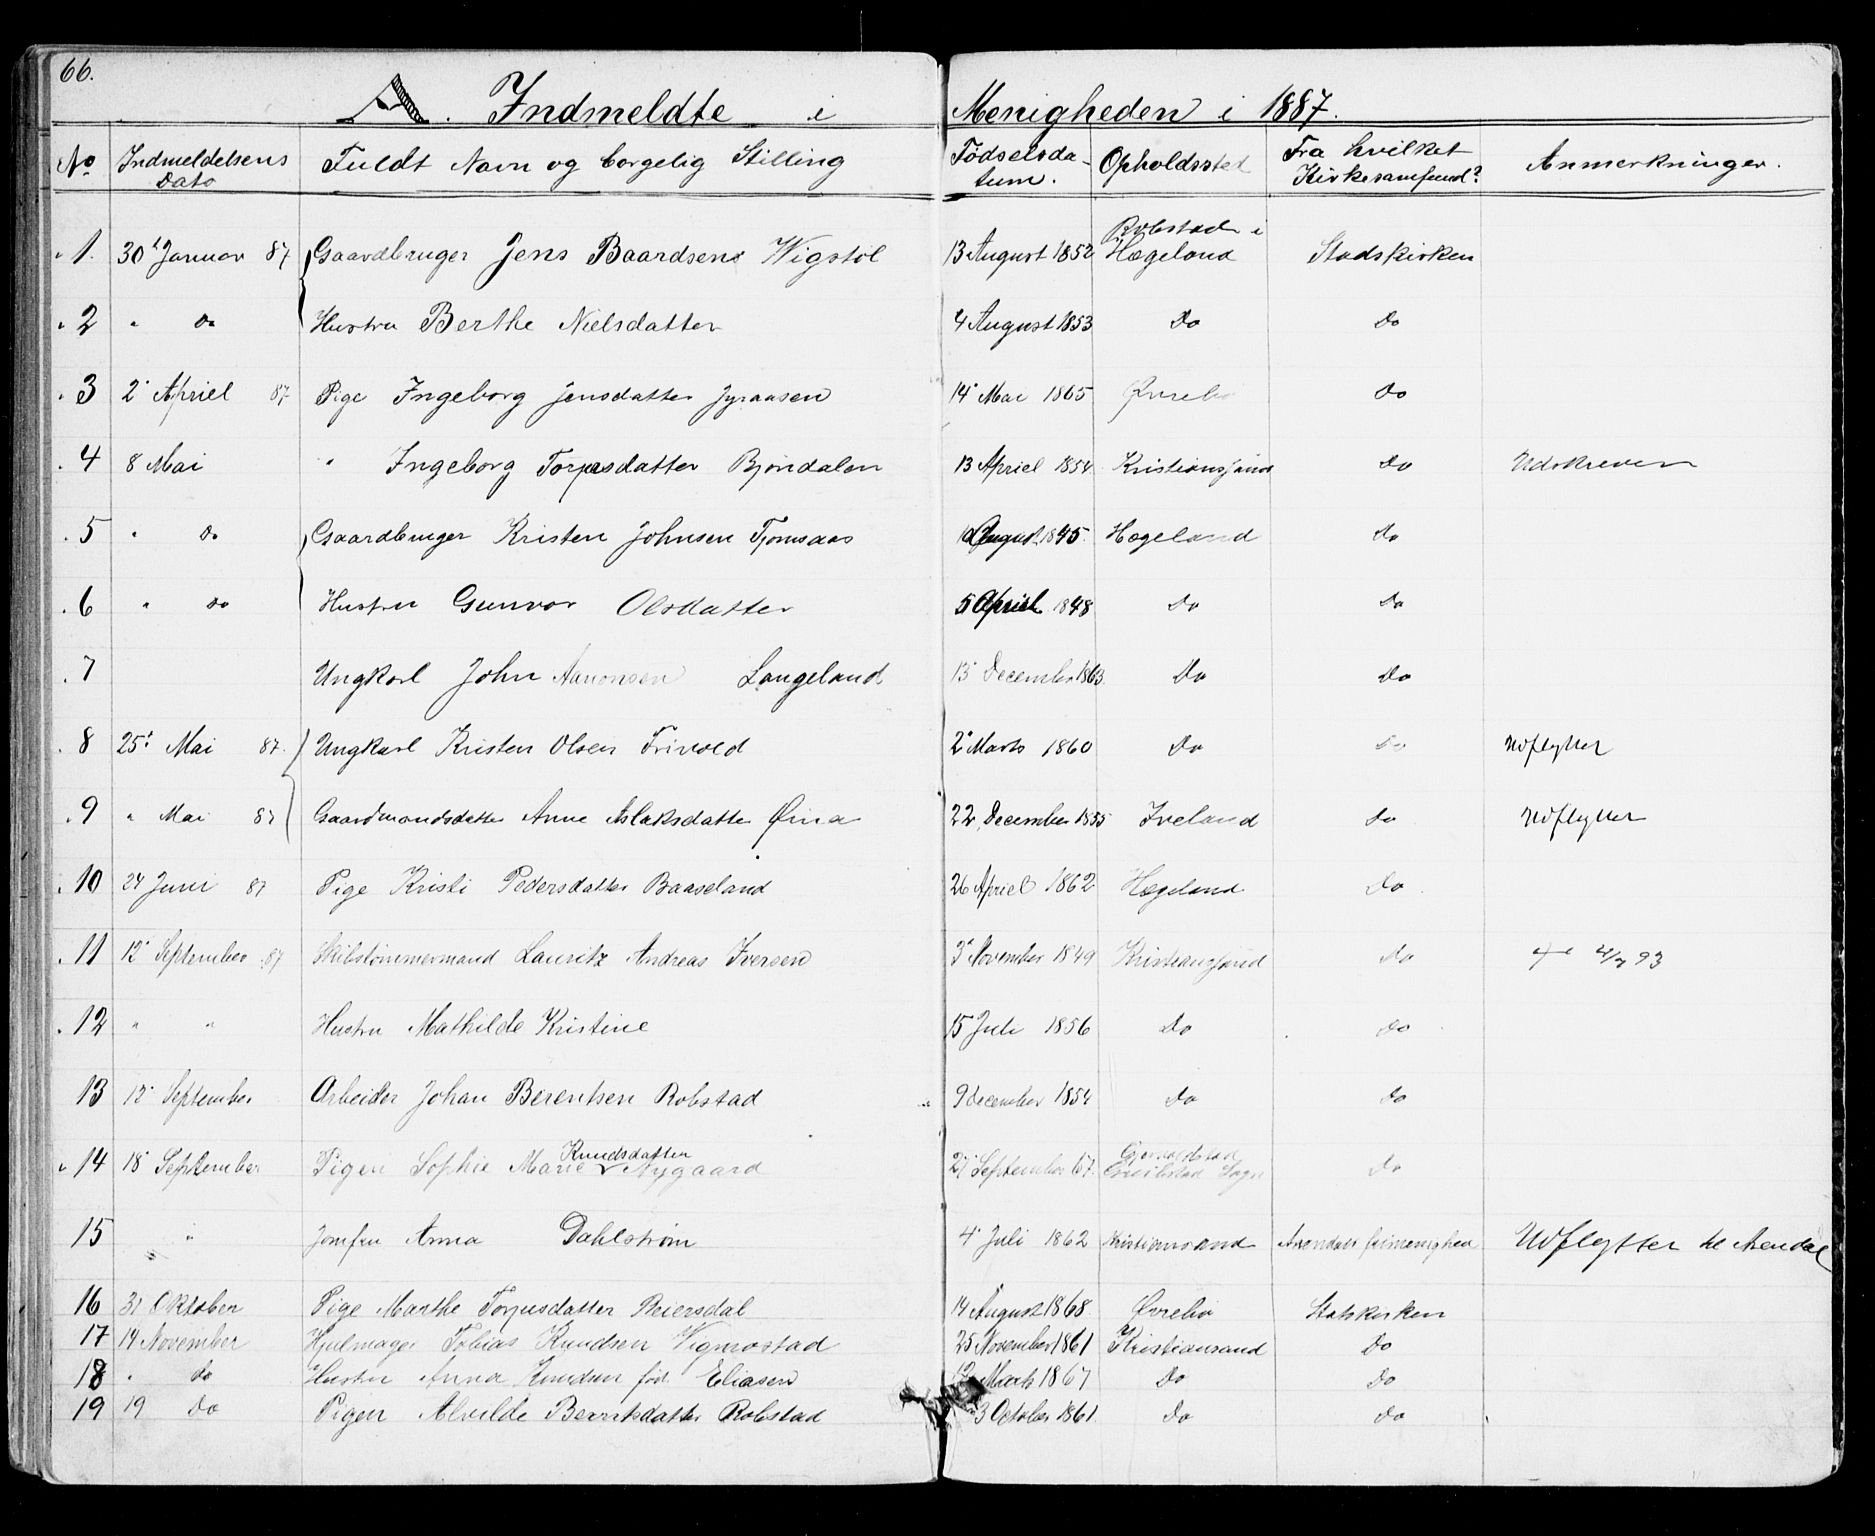 66.
A. Indmeldte i Menigheden i 1887.
No Indmeldelsens Dato Fuldt Navn og borgelig Stilling Fødselsdatum. Opholdssted Fra hvilket Kirkesamfund? Anmerkninger.
1. 30t Januar 87 Gaardbruger Jens Baardsen Wigstøl 13 August 1852 Robstad i Hægeland Stadskirken
2 " Do Hustru Berthe Nielsdatter 4 August 1853 Do Do
3 2' Apriel 87 Pige Ingeborg Jensdatter Jyraasen 14' Mai 1865 Øvrebø Do
4 8 Mai " Ingeborg Torjusdatter Bjøndalen 13 Apriel 1854 Kristianssand Do Udskreven
5 " Do Gaardbruger Kristen Johnsen Tjomsaas August 1845 Hægeland Do
6 " Do Hustru Gunvor Olsdatter 5 Apriel 1848 Do Do
7 Ungkarl John Aanonsen Langeland 13' December 1863 Do Do
8 25t Mai 87. Ungkarl Kristen Olsen Frivold 2' Marts 1860 Do Do Udflytter
9 " Mai 87 Gaardmandsdatter Anne Aslaksdatter Øina 22, December 1855 Iveland Do Udflytter
10 24 Juni 87 Pige Kristi Pedersdatter Baaseland 26 Apriel 1862 Hægeland Do
11 12' September 87 Skibstømmermand Lauritz Andreas Iversen 3' November 1849 Kristianssand Do + 4/7 93
12 " " Hustru Mathilde Kristine 15 Juli 1856 Do Do
13 12' September Arbeider Johan Berentsen Robstad 9 December 1854 Do Do
14 18' September Pigen Sophie Marie Knudsdatter Nygaard 27' September 67. Sogn Do
15 " Jomfru Anna Dahlstrøm 4' Juli 1862 Kristiansand Arendals frimenighed Udflytter til Arendal
16 31 Oktober Pige Marthe Torjusdatter Beiersdal 14 August 1868 Øvrebø Statskirken
17 14 November Hjulmager Tobias Knudsen Vigmostad 25 November 1861 Kristiansand Do
18 " do Hustru Anna Knudsen fød. Eliasen 12 Marts 1867 Do Do
19 19 Do Pigen Alvilde Berntsdatter Robstad 3 October 1861 Do Do